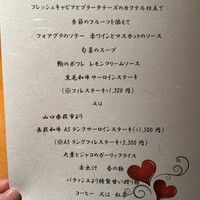 フレッシュキャビアとブラータチーズのカクテル仕立て
季節のフルーツを添えて
フォアグラのソテー 赤ワインとマスカットのソース
旬菜のスープ
鮑のポワレ レモンクリームソース
黒毛和牛サーロインステーキ
(※フィレステーキは+1,320円)
又は
山口県萩市より
長萩和牛 A5ランクサーロインステーキ(+3,300円)
(※A5ランクフィレステーキは+3,500円)
大葉とジャコのガーリックライス
赤出汁 香の物
パティシエより特製甘い贈り物
コーヒー 又は 紅茶